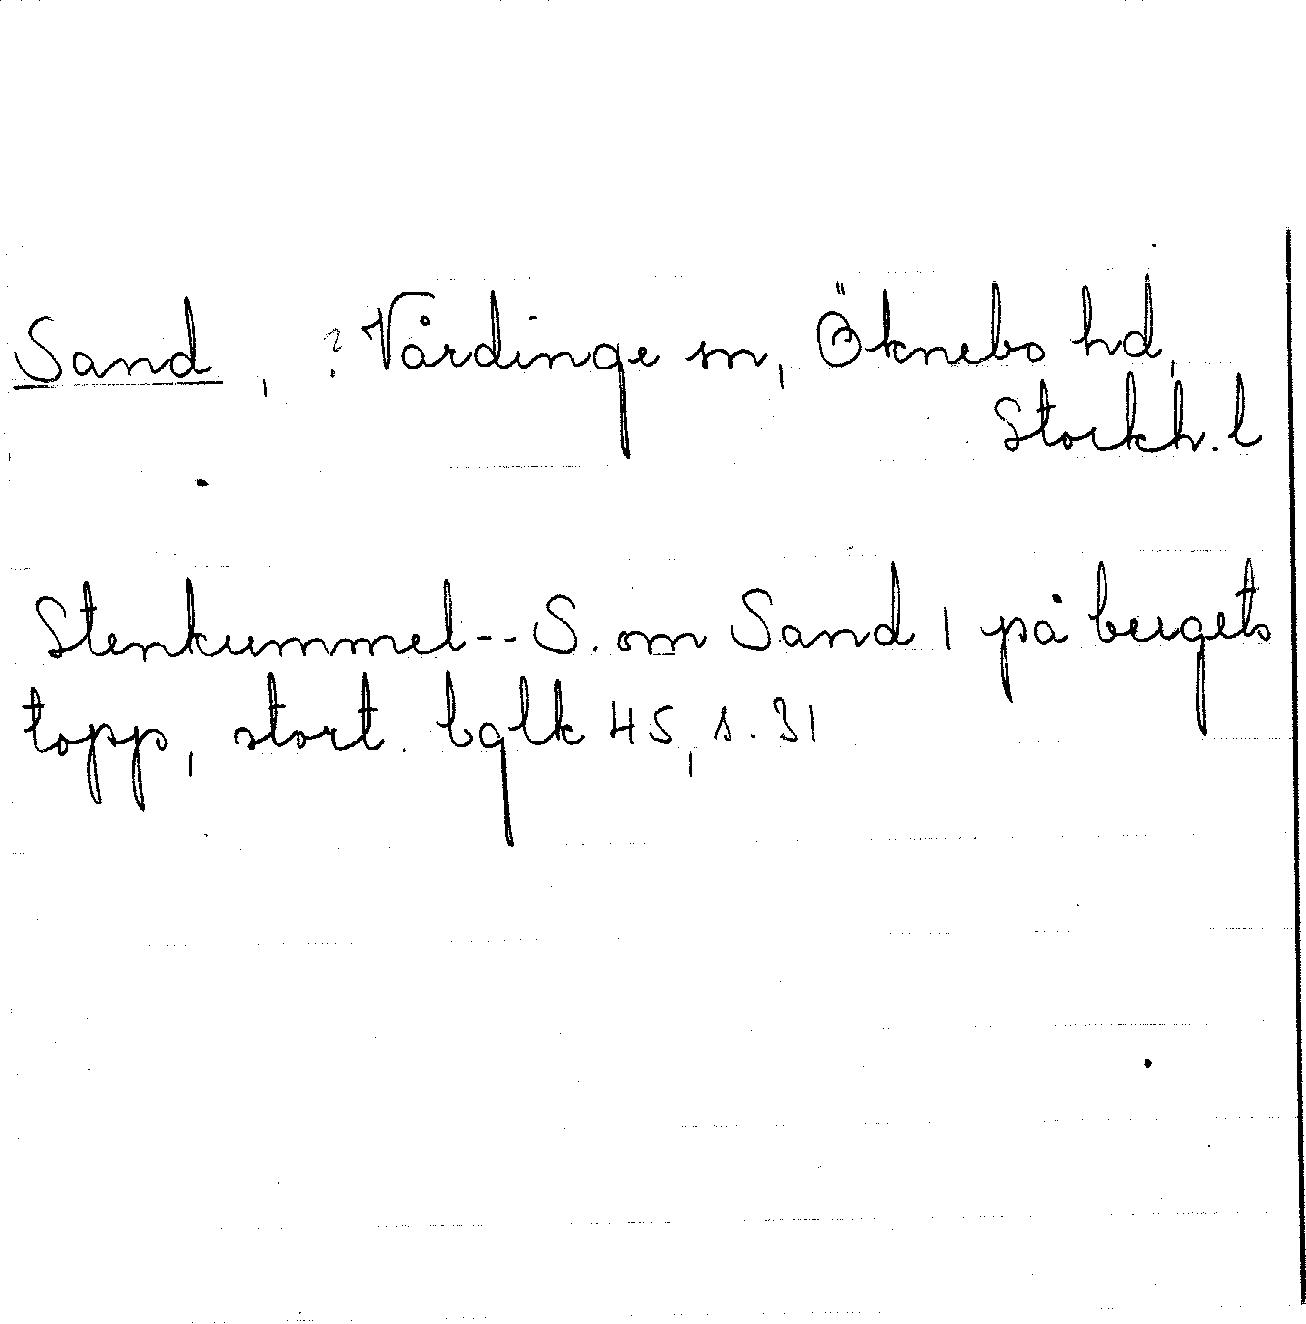 Sand, ? Vårdinge sn, Öknebo hd,
Stockh. l
Stenkummel -- S. om Sand 1 på bergets
topp, stort. bglk 45, s. 31